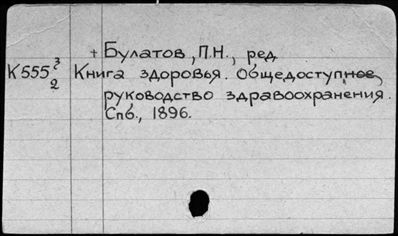 + Булатов, П.Н., ред
К555 3/2 Книга здоровья. Общедоступное
руководство здравоохранения.
Спб., 1896.